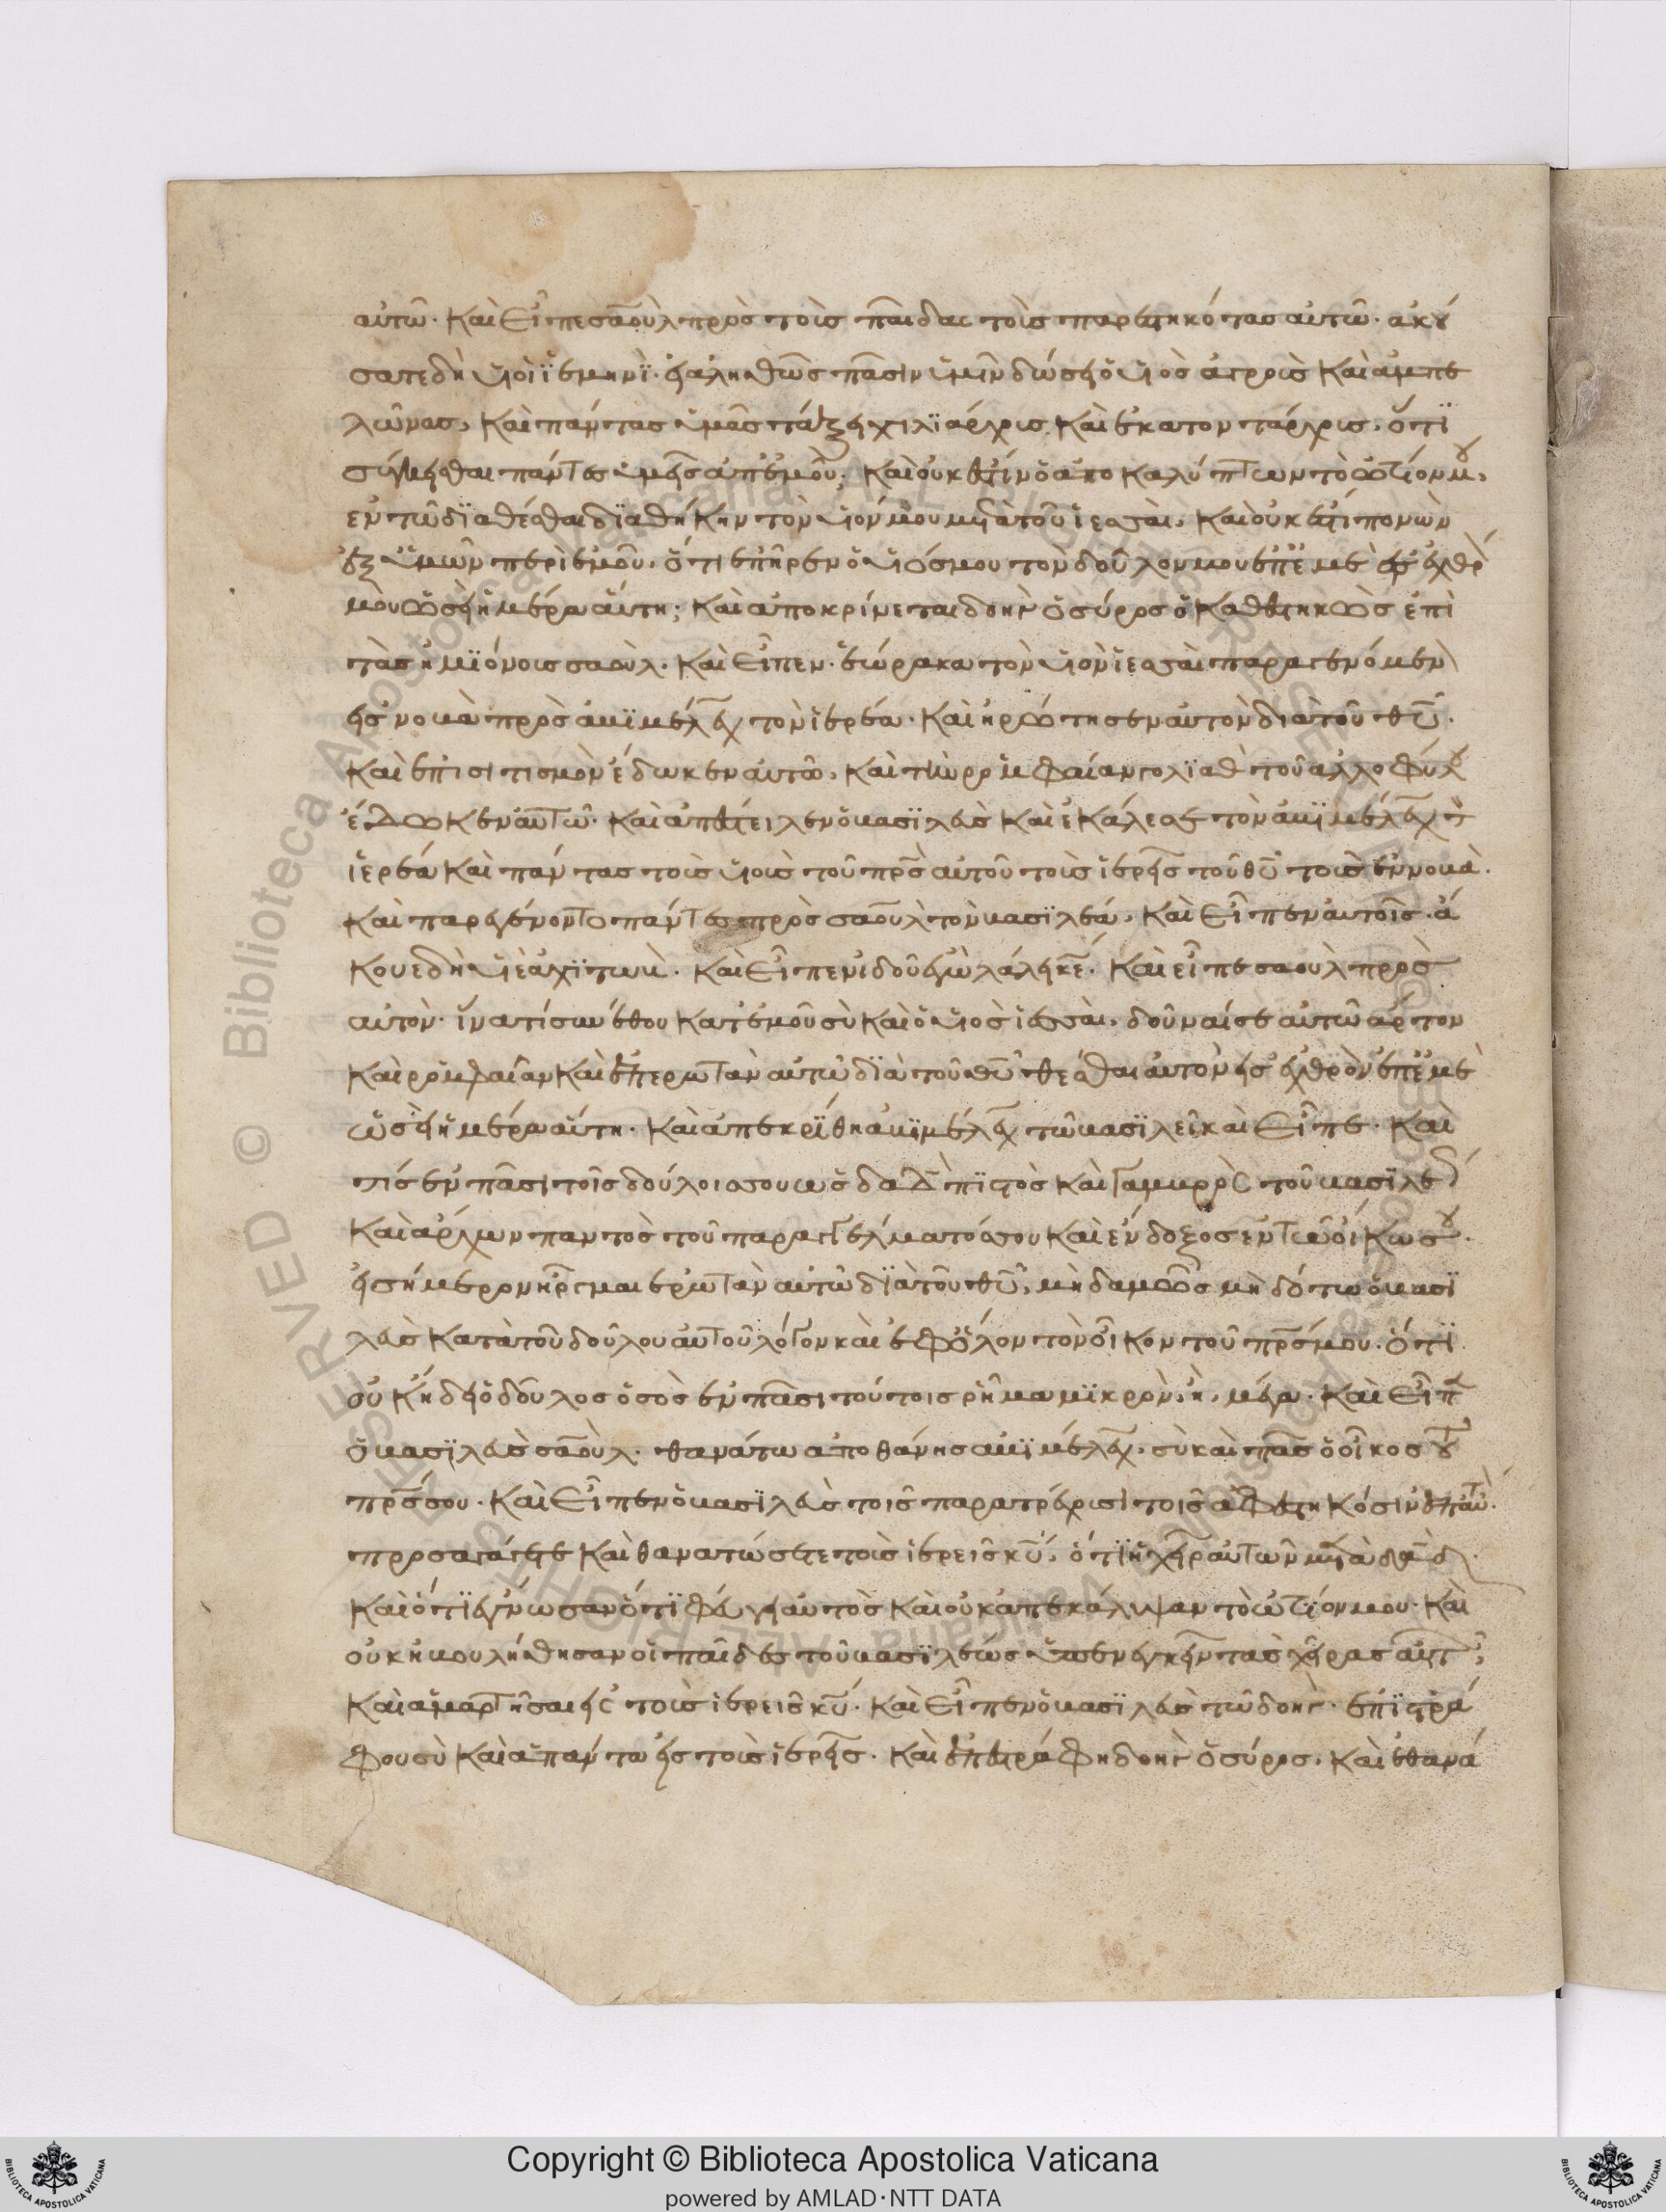 αὐτῶ· καὶ εἶπε σαοὺλ πρὸς τοὺς παῖδας τοὺς παρεστηκότας αὐτῶ· ἀκού
σατε δὴ υἱοὶ ϊεμηνϊ· εἰ ἀληθῶς πᾶσιν ὑμῖν δώσει ὁ υἱὸς ἀγροὺς καὶ ἀμπε
λῶνας, καὶ πάντας ὑμᾶς τάξει χιλϊάρχους καὶ ἑκατοντάρχους, ὅτϊ
σύγκεισθαι πάντες ὑμεῖς ἐπ' ἐμοῦ; καὶ οὐκ ἔστιν ὁ ἀποκαλύπτων τὸ ὠτίον μου,
ἐν τῶ δϊαθέσθαι δϊαθήκην τὸν υἱόν μου μετὰ τοῦ ϊεσσαὶ, καὶ οὐκ ἔστι πονῶν
ἐξ ὑμῶν περὶ ἐμοῦ, ὅτι ἐπῆρεν ὁ υἱός μου τὸν δοῦλον μου ἐπ' ἐμὲ εἰς ἐχθρό
μου ὡς ἡ ἡμέρα αὕτη; καὶ ἀποκρίνεται δοὴκ ὁ σύρος ὁ καθεστηκὼς ἐπὶ
τὰς ἡμϊόνους σαοὺλ. καὶ εἶπεν· ἑώρακα τὸν υἱὸν ϊεσσαὶ παραγενόμενον
εἰς νομβὰ πρὸς ἀβϊμέλεχ τὸν ἱερέα· καὶ ἠρώτησεν αὐτὸν διὰ τοῦ θυ·
καὶ ἐπισιτισμὸν ἔδωκεν αὐτῶ, καὶ τὴν ῥομφαίαν γολϊὰθ τοῦ ἀλλοφύλου
ἔδωκεν αὐτῶ· καὶ ἀπέστειλεν ὁ βασϊλεὺς καὶ ἐκάλεσε τὸν ἀβϊμέλεχ τὸν
ϊερέα καὶ πάντας τοὺς υἱοὺς τοῦ πρς αὐτοῦ τοὺς ἱερεῖς τοῦ θυ τοὺς ἐν νομβὰ.
καὶ παρεγένοντο πάντες πρὸς σαοὺλ τὸν βασϊλέα, καὶ εἶπεν αὐτοῖς· ἄ
κουε δὴ υἱὲ ἀχϊτὼβ. καὶ εἶπεν ἰδοῦ ἐγὼ λάλει κε. καὶ εἶπε σαοὺλ πρὸς
αὐτὸν· ἵνα τί συνέθου κατ' ἐμοῦ σὺ καὶ ὁ υἱὸς ϊεσσαὶ, δοῦναί σε αὐτῶ ἄρτον
καὶ ῥομφαίαν καὶ ἐπερωτᾶν αὐτῶ δϊὰ τοῦ θυ θέσθαι αὐτὸν εἰς ἐχθρὸν ἐπ' ἐμὲ
ὡς ἡ ἡμέρα αὕτη· καὶ ἀπεκρίθη ἀβϊμέλεχ τῶ βασϊλεῖ καὶ εἶπε· καὶ
τίς ἐν πᾶσι τοῖς δούλοις σου ὡς δαδ πϊστὸς καὶ γαμβρὸς τοῦ βασϊλέως
καὶ ἄρχων παντὸς τοῦ παραγγέλματός σου καὶ ἔνδοξος ἐν τῶ οἴκω σου·
εἰ σήμερον ἦργμαι ἐρωτᾶν αὐτῶ δϊὰ τοῦ θυ, μηδαμῶς μὴ δότω ὁ βασϊ
λεὺς κατὰ τοῦ δούλου αὐτοῦ λόγον καὶ ἐφ' ὅλον τὸν οἶκον τοῦ πρς μου· ὅτϊ
οὐκ ᾔδει ὁ δοῦλος ὁ σὸς ἐν πᾶσι τούτοις ῥῆμα μϊκρὸν, ἢ, μέγα· καὶ εἶπε
ὁ βασϊλεὺς σαοὺλ· θανάτω ἀποθάνης ἀβϊμέλεχ, σὺ καὶ πᾶς ὁ οἶκος τοῦ
πρς σου· καὶ εἶπεν ὁ βασϊλεὺς τοῖς παρατρέχουσι τοῖς ἐφεστηκόσιν ἐπ' αὐτὸν·
προσαγάγετε καὶ θανατώσετε τοὺς ἱερεῖς κυ, ὅτϊ ἡ χεὶρ αὐτῶν μετὰ δαδ·
καὶ ὅτϊ ἔγνωσαν ὅτϊ φεύγει αὐτὸς καὶ οὐκ ἀπεκάλυψαν τὸ ὠτίον μου· καὶ
οὐκ ἠβουλήθησαν οἱ παῖδες τοῦ βασϊλέως ἐπενεγκεῖν τὰς χεῖρας αὐτῶν,
καὶ ἁμαρτῆσαι εἰς τοὺς ἱερεῖς κυ· καὶ εἶπεν ὁ βασϊλεὺς τῶ δοὴκ· ἐπϊστρέ
φου σὺ καὶ ἀπάντα εἰς τοὺς ἱερεῖς· καὶ ἐπεστράφη δοὴκ ὁ σύρος, καὶ ἐθανά
Copyright © Biblioteca Apostolica Vaticana
powered by AMLAD·NTT DATA